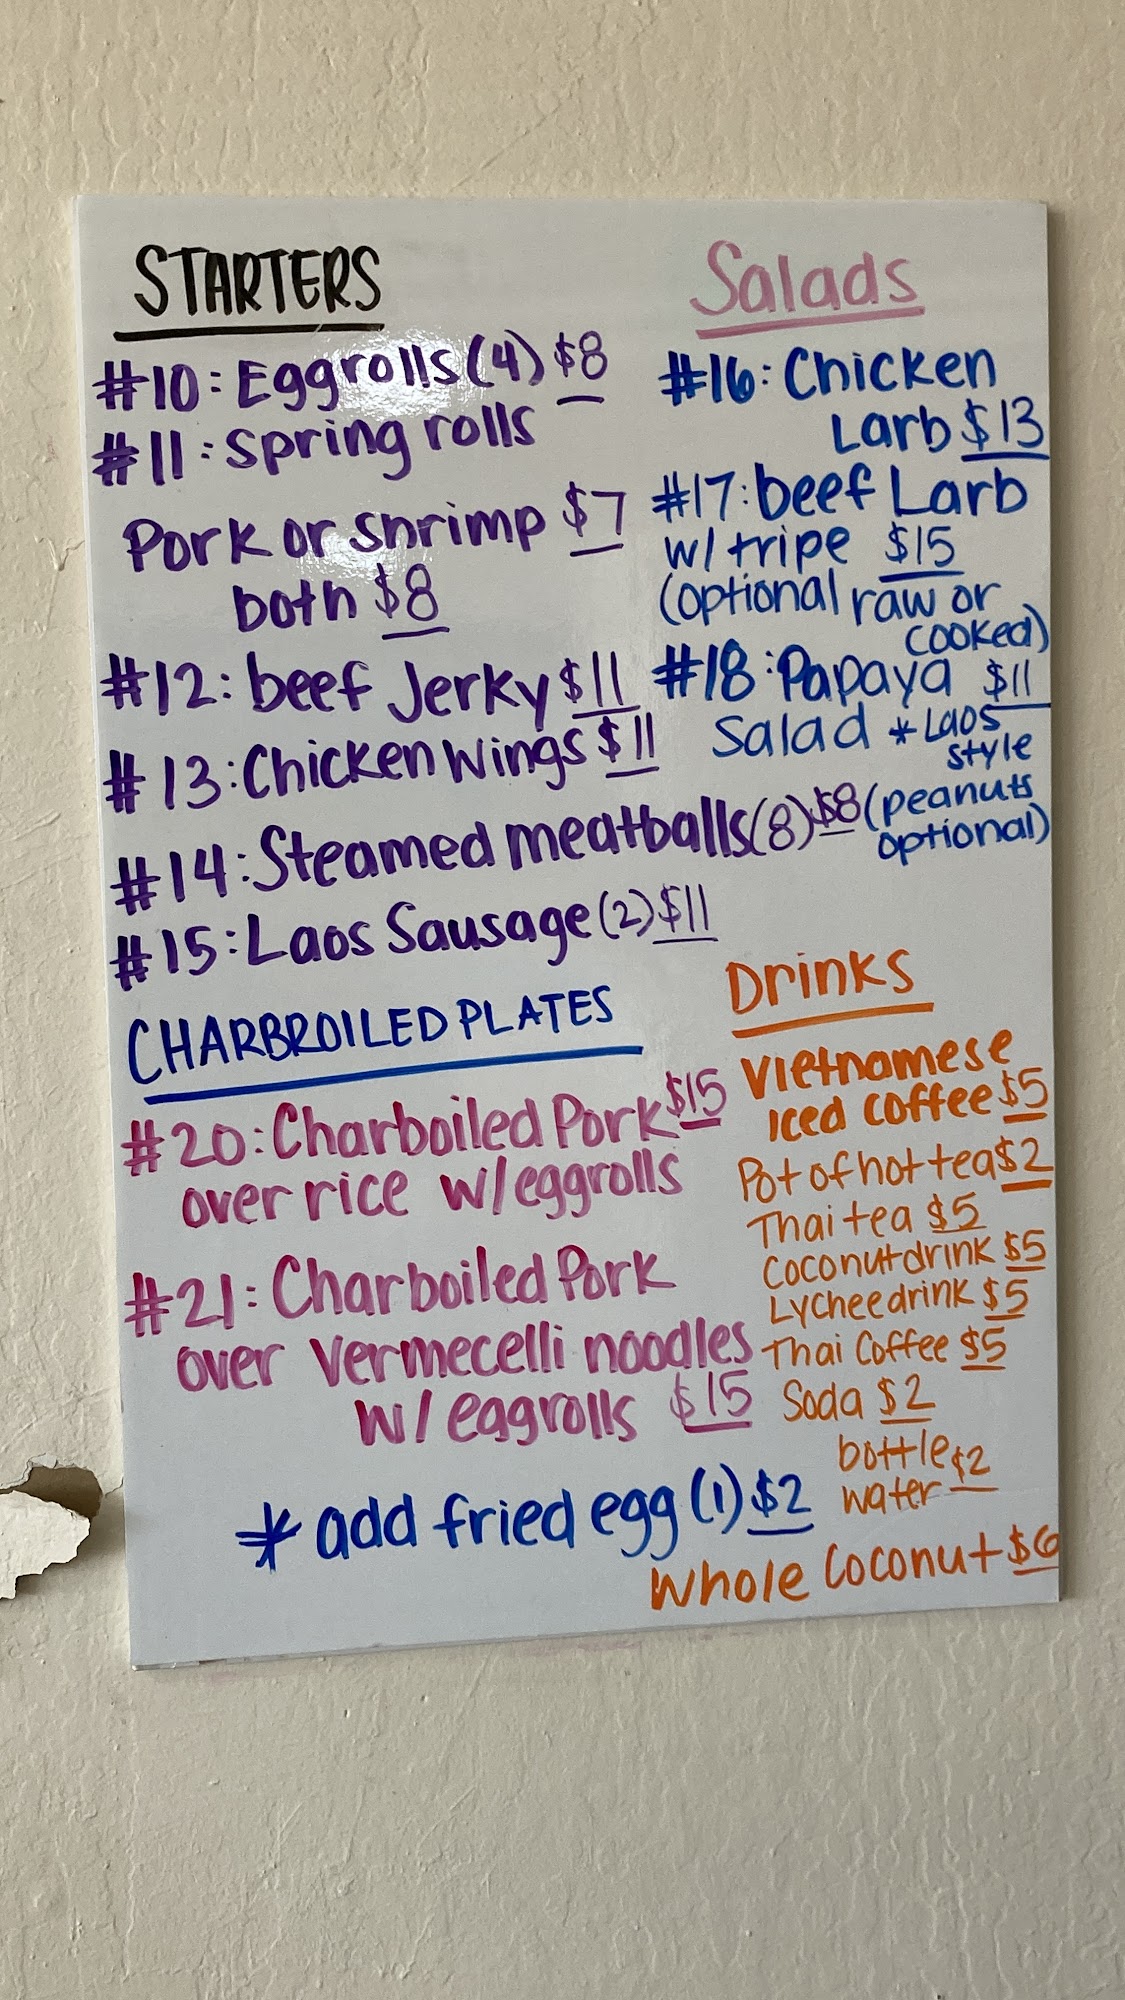 STARTERS
#10: Eggrolls (4) $8
#11: Spring rolls
Pork or shrimp $7
both $8
#12: beef Jerky $11
#13: Chicken Wings $11
#14: Steamed meatballs (8) $8
#15: Laos Sausage (2) $11
CHARBROILED PLATES
#20: Charboiled Pork $15
over rice w/ eggrolls
#21: Charboiled Pork
over Vermecelli noodles
w/ eggrolls $15
* add fried egg (1) $2
Salads
#16: Chicken
Larb $13
#17: beef Larb
w/ tripe $15
(optional raw or
cooked)
#18: Papaya $11
Salad * Laos
style
(peanuts
optional)
Drinks
Vietnamese
Iced coffee $5
Pot of hot tea $2
Thai tea $5
Coconut drink $5
Lychee drink $5
Thai Coffee $5
Soda $2
bottle $2
water
Whole Coconut $6